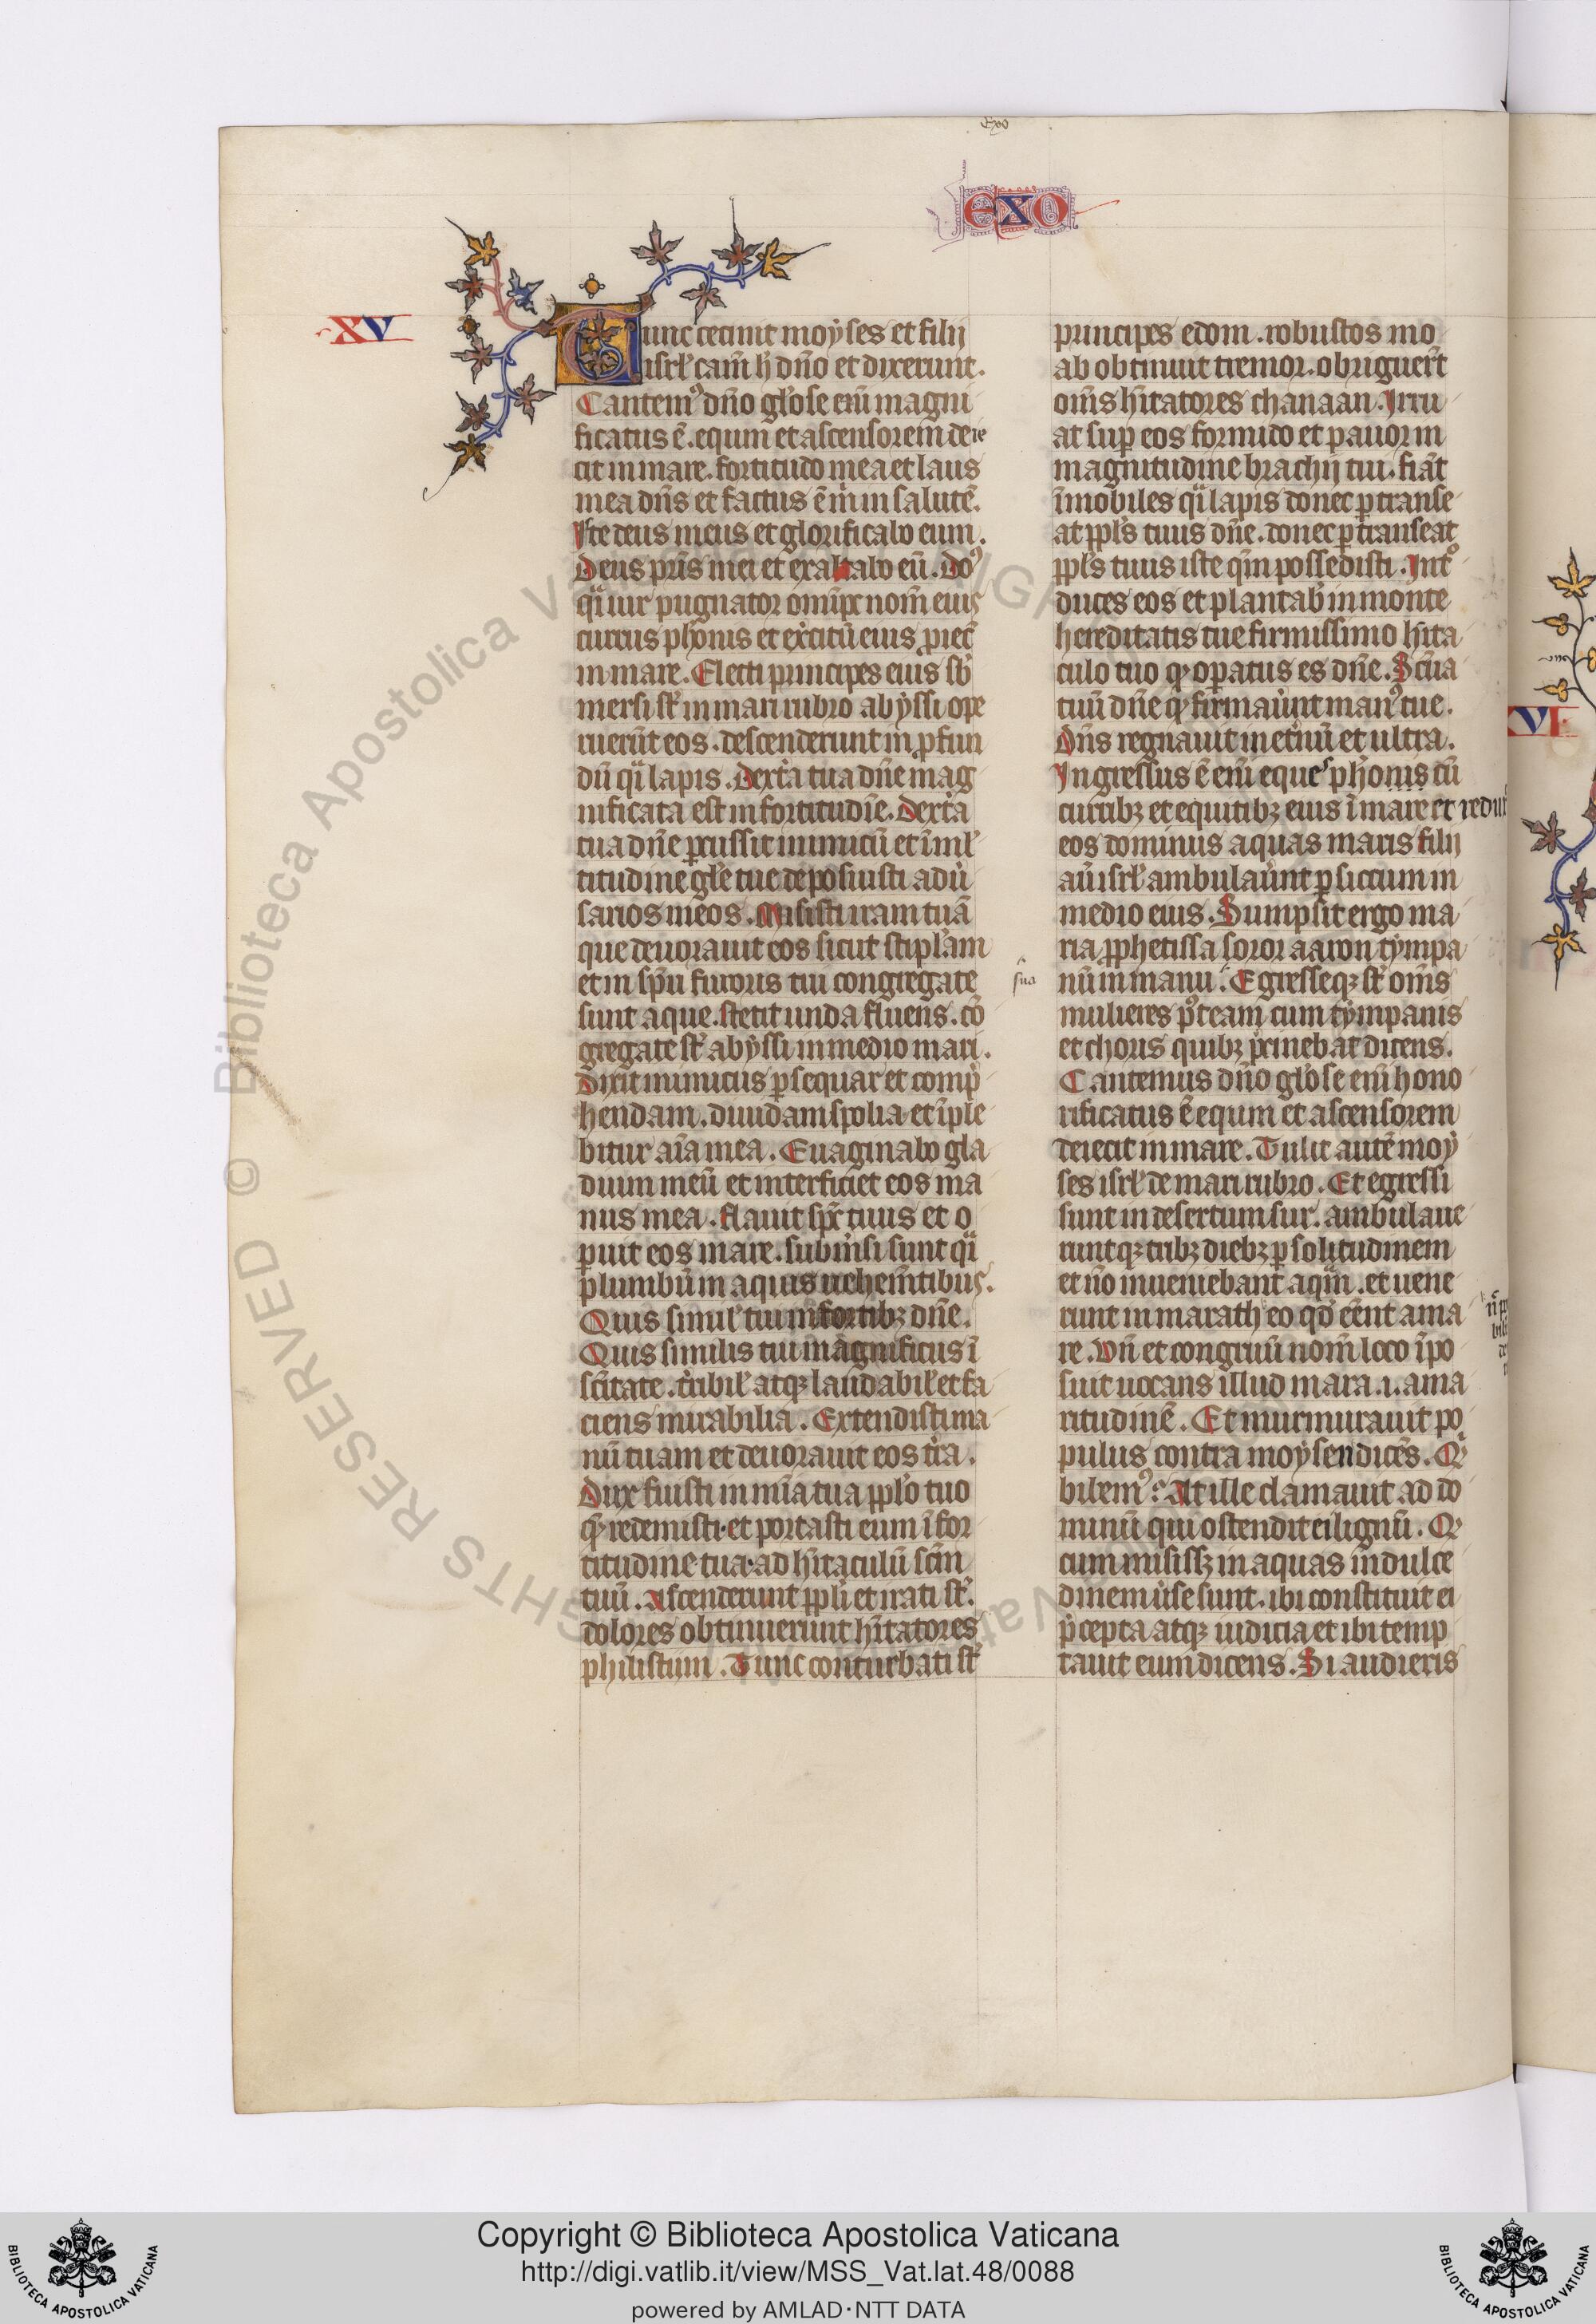 Exo
EXO
XV
Tunc cecinit moyses et filij
isrl̕ carm̄ h̕ dn̄o et dixerunt.
Cantem⁹ dn̄o gl̕ose eni᷒ magni
ficatus ē. equm et ascensorem deie
cit in mare. fortitudo mea et laus
mea dn̄s et factus ē m̕ in salutē.
Iste deus meus et glorificabo eum.
Deus pr̄is mei et exaltabo eū. Do⁹
qͣi uir pugnator omīpx nom̄ eius
currus ph̕onis et ex̕citū eius ꝓiec̄
in mare. Electi principes eius sb̕
mersi st̕ in mari rubro abyssi ope
ruerūt eos. descenderunt in ꝓfun
dū qͣi lapis. Dext̕a tua dn̄e mag
nificata est in fortitudīe. Dext̕a
tua dn̄e ꝑcussit inimicū et ī ml̕
titudine gl̕e tue deposuisti adu̕
sarios meos. Misisti iram tuā
que deuorauit eos sicut stipl̕am
et in sp̄u furoris tui congregate
sunt aque. stetit unda fluens. cō
gregate st̕ abyssi in medio mari.
Dixit inimicus ꝑsequar et comp̕
hendam. diuidam spolia et īple
bitur aīa mea. Euaginabo gla
dium meū et interficiet eos ma
nus mea. Flauit sp̄c tuus et o
ꝑuit eos mare. subm̕si sunt qͣi
plumbū in aquis uehem̄tibus.
Quis simil̕ tui in fortibꝫ dn̄e.
Quis similis tui magnificus ī
sc̄itate. t̕ribil̕ atqꝫ laudabil̕ et fa
ciens mirabilia. Extendisti ma
nū tuam et deuorauit eos t̕ra.
Dux fuisti in mīa tua ppl̕o tuo
qͣ̄ redemisti. et portasti eum ī for
titudine tua. ad h̕itaculū sc̄m
tuū. Ascenderunt ppl̕i et irati st̕.
dolores obtinuerunt h̕itatores
philistiim. Tunc conturbati st̕
principes edom. robustos mo
ab obtinuit tremor. obriguer̄t
om̄s h̕itatores chanaan. Irru
at suꝑ eos formido et pauor in
magnitudine brachij tui. fiāt
īmobiles qͣi lapis donec ꝑtranse
at ppl̕s tuus dn̄e. donec ꝑtranseat
ppl̕s tuus iste qm̄ possedisti. Int°
duces eos et plantab̕ in monte
hereditatis tue firmissimo h̕ita
culo tuo qͩ oꝑatus es dn̄e. Sc̄ua
tuū dn̄e qͩ firmaue̕unt man⁹ tue.
Dn̄s regnauit in et̕nū et ultra.
Ingressus ē eni᷒ eques ph̕onis cū
curribꝫ et equitibꝫ eius ī mare et redux̄
eos dominus aquas maris filij
aū isrl̕ ambulaue̕unt ꝑ siccum in
medio eius. Sumpsit ergo ma
ria ꝓphetissa soror aaron tympa
sua
nū in manu. Egresseqꝫ st̕ om̄s
mulieres p⁹t eam cum tympanis
et choris quibꝫ p̕cinebat dicens.
Cantemus dn̄o gl̕ose eni᷒ hono
rificatus ē equm et ascensorem
deiecit in mare. Tulit autē moy
ses isrl̕ de mari rubro. Et egressi
sunt in desertum sur. ambulaue
runtqꝫ tribꝫ diebꝫ ꝑ solitudinem
et nō inueniebant aqͣm. et uene
runt in marath eo qd̕ eēnt ama
re. Vn̄ et congruū nom̄ loco īpo
suit uocans illud mara .i. ama
ritudinē. Et murmurauit po
pulus contra moysen dicēs. Qͥ
bibem⁹. At ille clamauit ad do
minū qui ostendit ei lignū. Qͩ
cum misissꝫ in aquas in dulce
dinem u̕se sunt. ibi constituit ei
p̕cepta atqꝫ iudicia et ibi temp
tauit eum dicens. Si audieris
XVI
© Biblioteca Apostolica Vaticana
ALL RIGHTS RESERVED
Copyright © Biblioteca Apostolica Vaticana
http://digi.vatlib.it/view/MSS_Vat.lat.48/0088
powered by AMLAD·NTT DATA
BIBLIOTECA APOSTOLICA VATICANA
BIBLIOTECA APOSTOLICA VATICANA